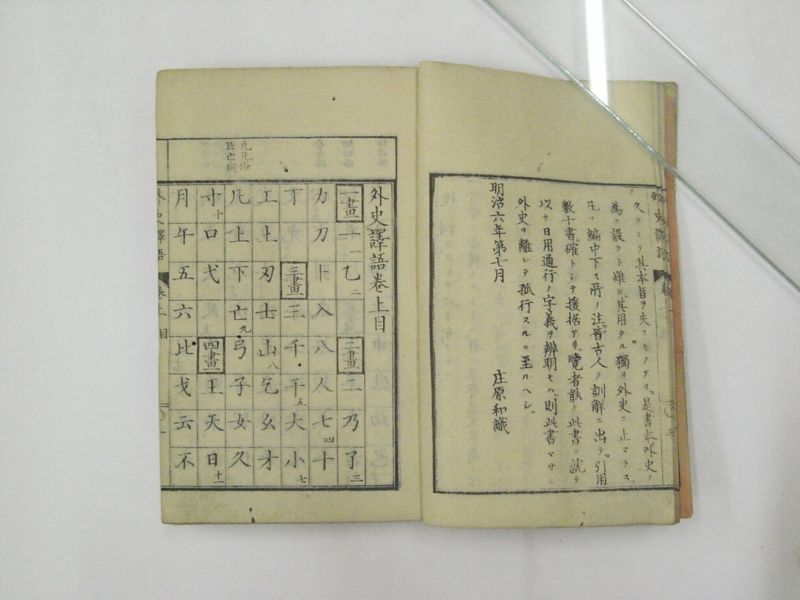 クカシク其本旨ヲ失フモノアリ、是書本外史ノ
為ニ設クト雖ㇳモ其用タル獨リ外史ニ止マラス
凡ソ編中下ス所ノ注皆古人ノ訓解ニ出テ引用
數十書確トシテ援据アリ覽者能ク此書ニ就テ
以テ日用通行ノ字義ヲ辨明セハ則此書マサニ
外史ヲ離レテ孤行スルニ至ルヘシ
明治六年第七月
庄原和識
外史譯語卷上目
一畫 一 一 乙 二 二畫 二 乃 了 三
力 刀 卜 入 八 人 七 四 十
丁 三畫 三 千 干 五 大 小 七
工 土 刃 士 山 八 乞 幺 才
凡 上 下 亡 九 弓 子 女 久
寸 十 口 弋 四畫 王 天 日 十一
月 午 五 六 比 戈 云 不
外史譯語